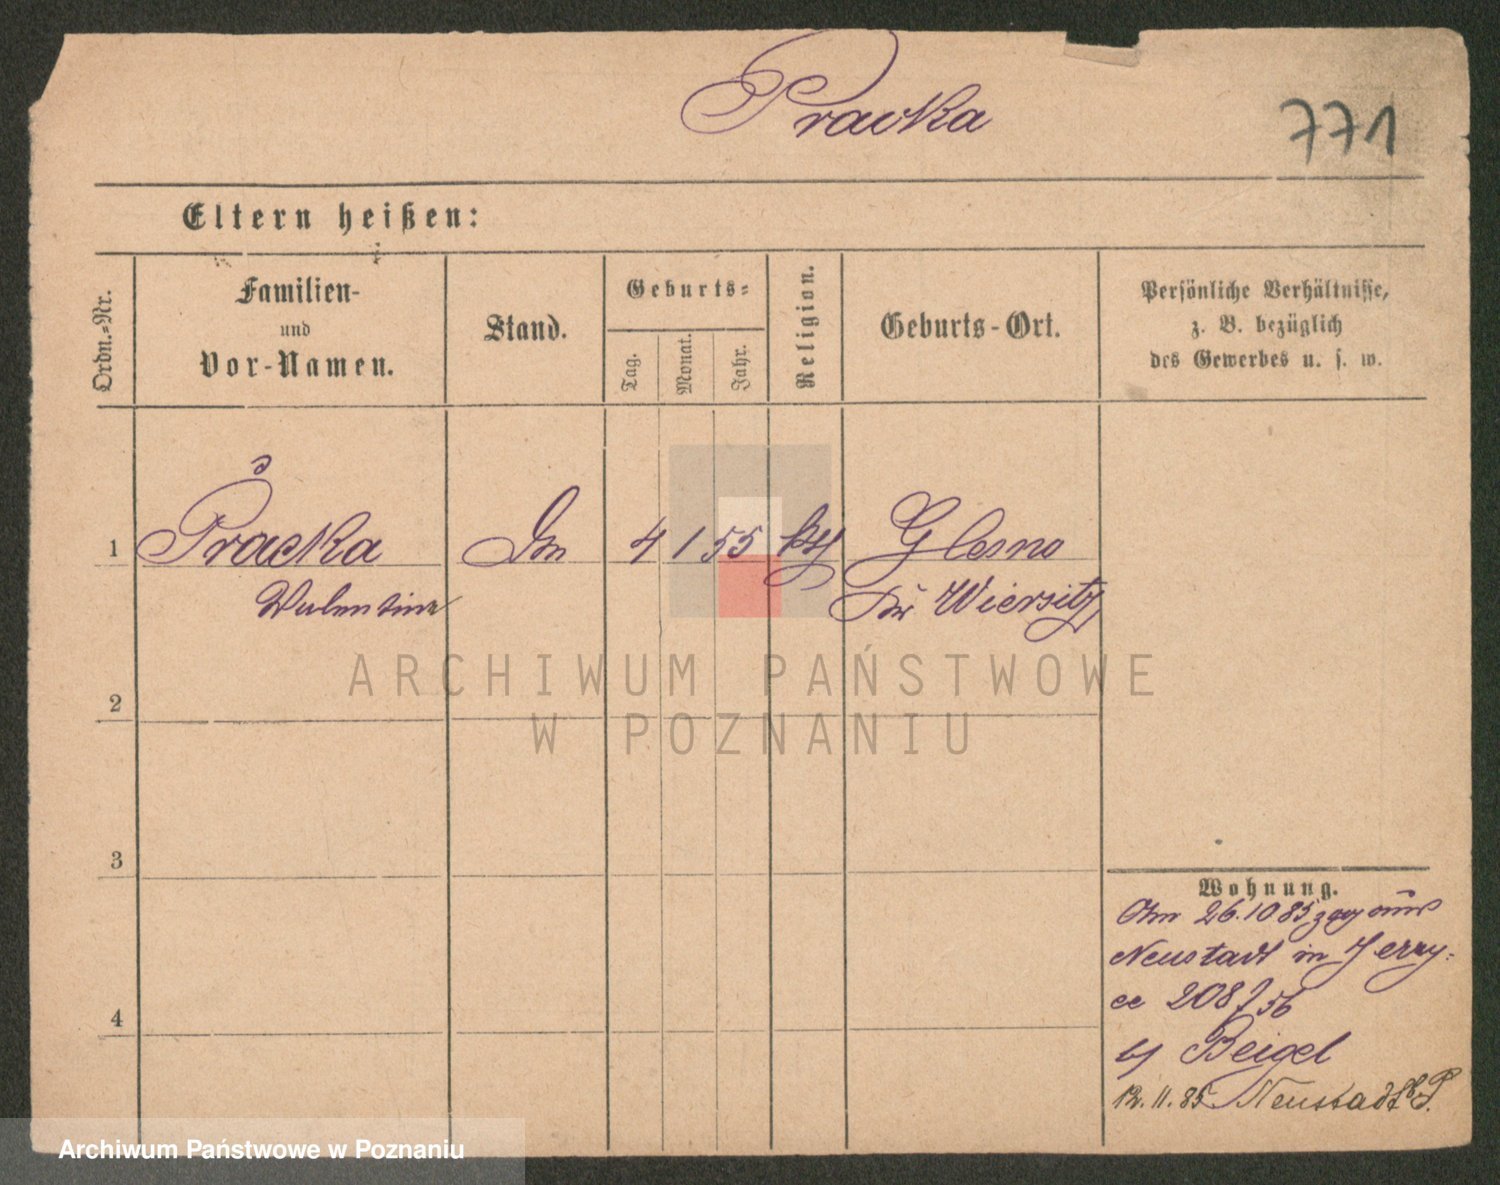 Pracka
771
Eltern heißen:
Ordn.-Nr.
Familien-
und
Vor-Namen.
Stand.
Geburts-
Tag.
Monat.
Jahr.
Religion.
Geburts-Ort.
Persönliche Verhältnisse,
z. B. bezüglich
des Gewerbes u. s. w.
1 Pracka 4 1 55 Glesno
Valentine Wiersitz
2
3
4
Wohnung.
Am 26.10 85 zgz aus
Neustadt in Jerzy-
ce 208
Beigel
12.11.85 Neustadt b/P.
ARCHIWUM PAŃSTWOWE
W POZNANIU
Archiwum Państwowe w Poznaniu